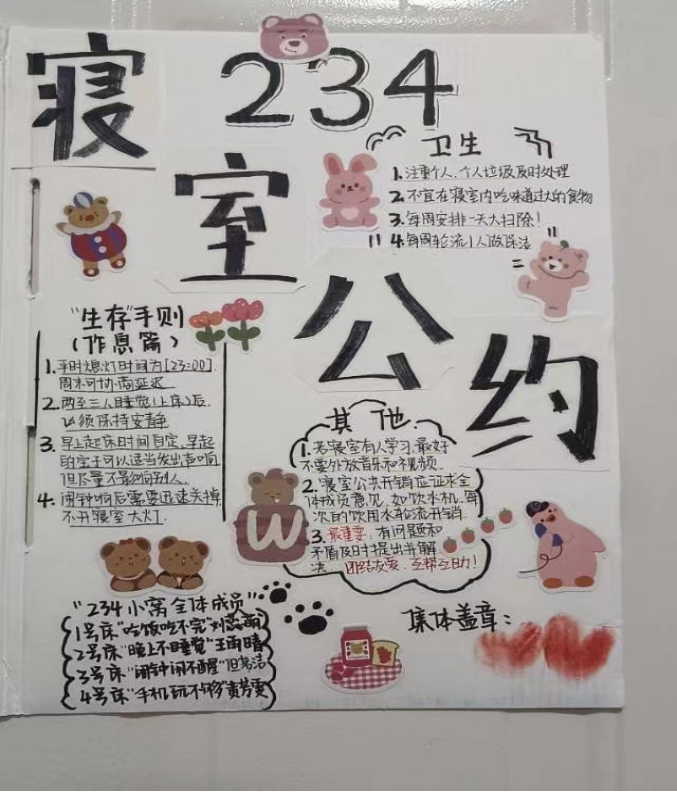 234
寝室公约
卫生
1.注重个人,个人垃圾及时处理
2.不宜在寝室内吃味道过大的食物
3.每周安排一天大扫除!
4.每周轮流1人做保洁
"生存"手则
(作息篇)
1.平时熄灯时间为[23:00]
周末可协商延迟
2.两至三人睡觉(上床)后
必须保持安静
3.早上起床时间自定,早起
的室子可以适当发出声响
但尽量不影响别人.
4.闹钟响后需要迅速关掉
不开寝室大灯.
其他
1.若寝室有人学习,最好
不要外放音乐和视频.
2.寝室公共开销应征求全
体成员意见,如饮水机,每
次的饮用水轮流开销.
3.最重要:有问题和
矛盾及时提出并解
决.团结友爱,互帮互助!
W
"234小窝全体成员"
1号床"吃饭吃不完"刘
2号床"晚上不睡觉"王雨晴
3号床"闹钟闹不醒"
4号床"手机玩不够"黄芳雯
集体盖章: